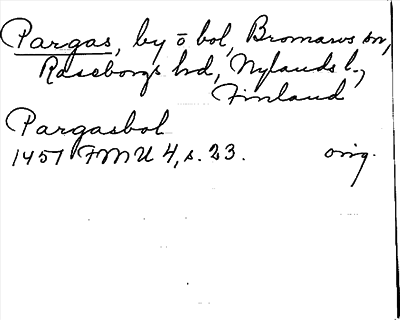 Pargas, by o bol, Bromarvs sn,
Raseborgs hd, Nylands l.,
Finland
Pargasbol
1451 FMU 4, s. 23. orig.